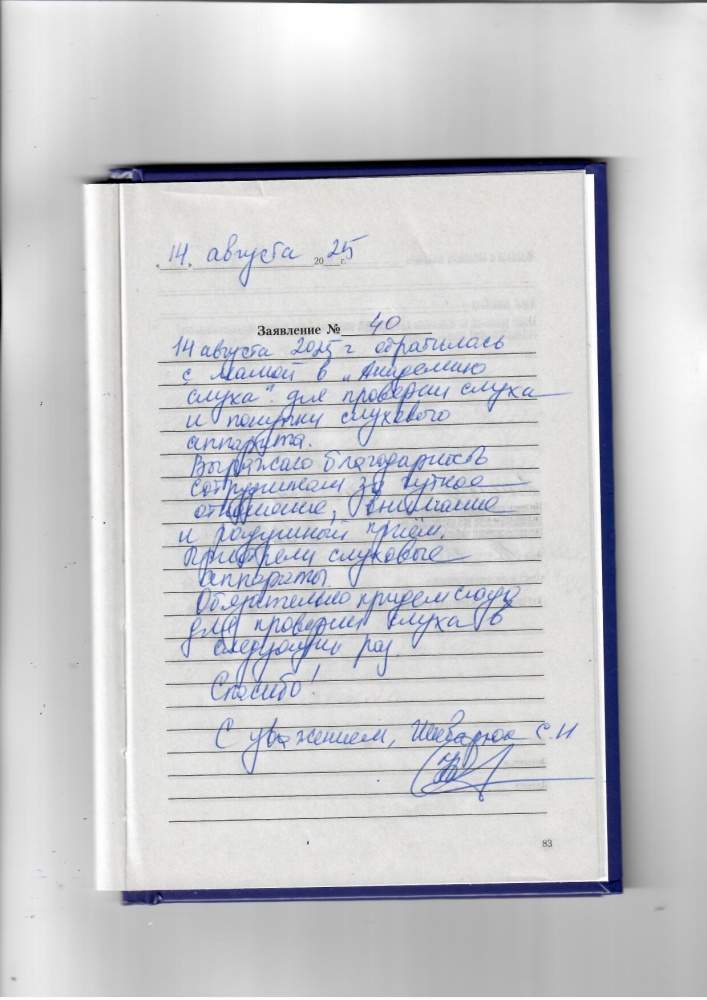 „ 14 „ августа 20 25 г.
Заявление № 40
14 августа 2025 г обратилась
с мамой в „Академию
слуха" для проверки слуха
и покупки слухового
аппарата.
Выражаю благодарность
сотрудникам за чуткое
отношение, внимание
и радушный приём.
Приобрели слуховые
аппараты.
Обязательно придем сюда
для проверки слуха в
следующий раз.
Спасибо!
С уважением, С.И
83